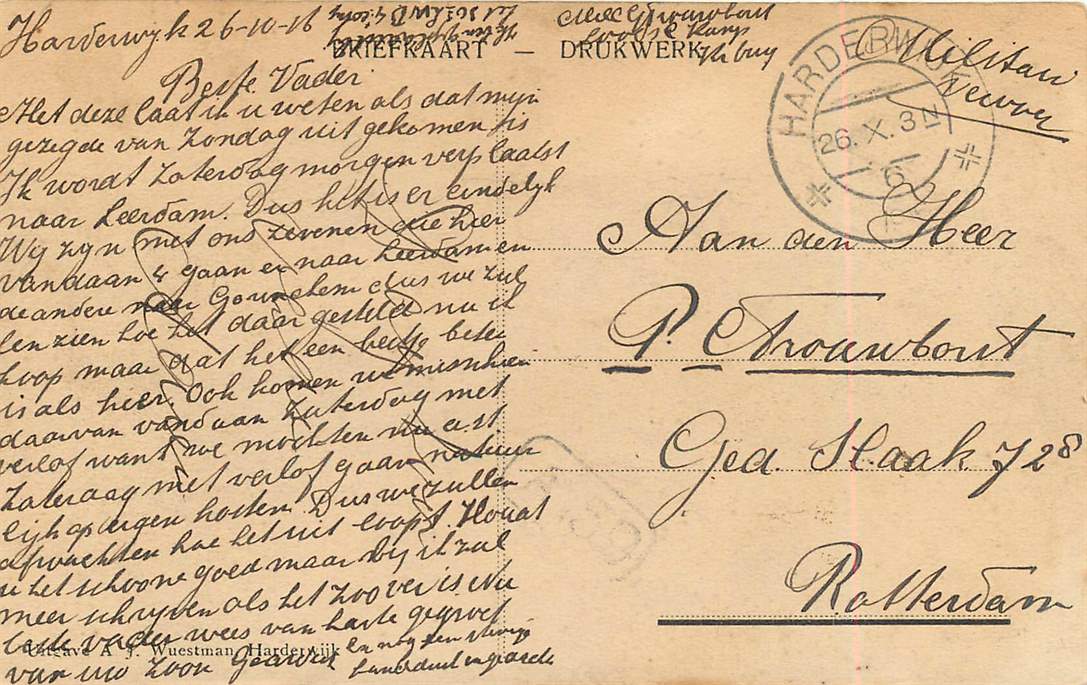 Harderwijk 26-10-16
BRIEFKAART — DRUKWERK
Militair
HARDERWIJK
26. X. 3 N
6
Beste Vader
Met deze laat ik u weten als dat mijn
gezegde van Zondag uit gekomen is
Ik wordt Zaterdag morgen verplaatst
naar Leerdam. Dus het is er eindelyk
Wij zyn met ons zevenen die hier
vandaan 4 gaan er naar Leerdam en
de andere naar Gorinchem dus we zul
len zien hoe het daar gesteld nu ik
hoop maar dat het een beetje beter
is als hier. Ook komen we misschien
daarvan vandaan Zaterdag met
verlof want we mochten nu eerst
Zaterdag met verlof gaan natuur
lijk op eigen kosten. Dus we zullen
afwachten hoe het uit loopt. Houdt
u het schoone goed maar bij ik zal
meer schryven als het zoo ver is Nu
beste vader wees van harte gegroet
van uw zoon
Uitgave A. J. Wuestman Harderwijk
Aan den Heer
P. Trouwbout
Ged. Slaak 728
Rotterdam